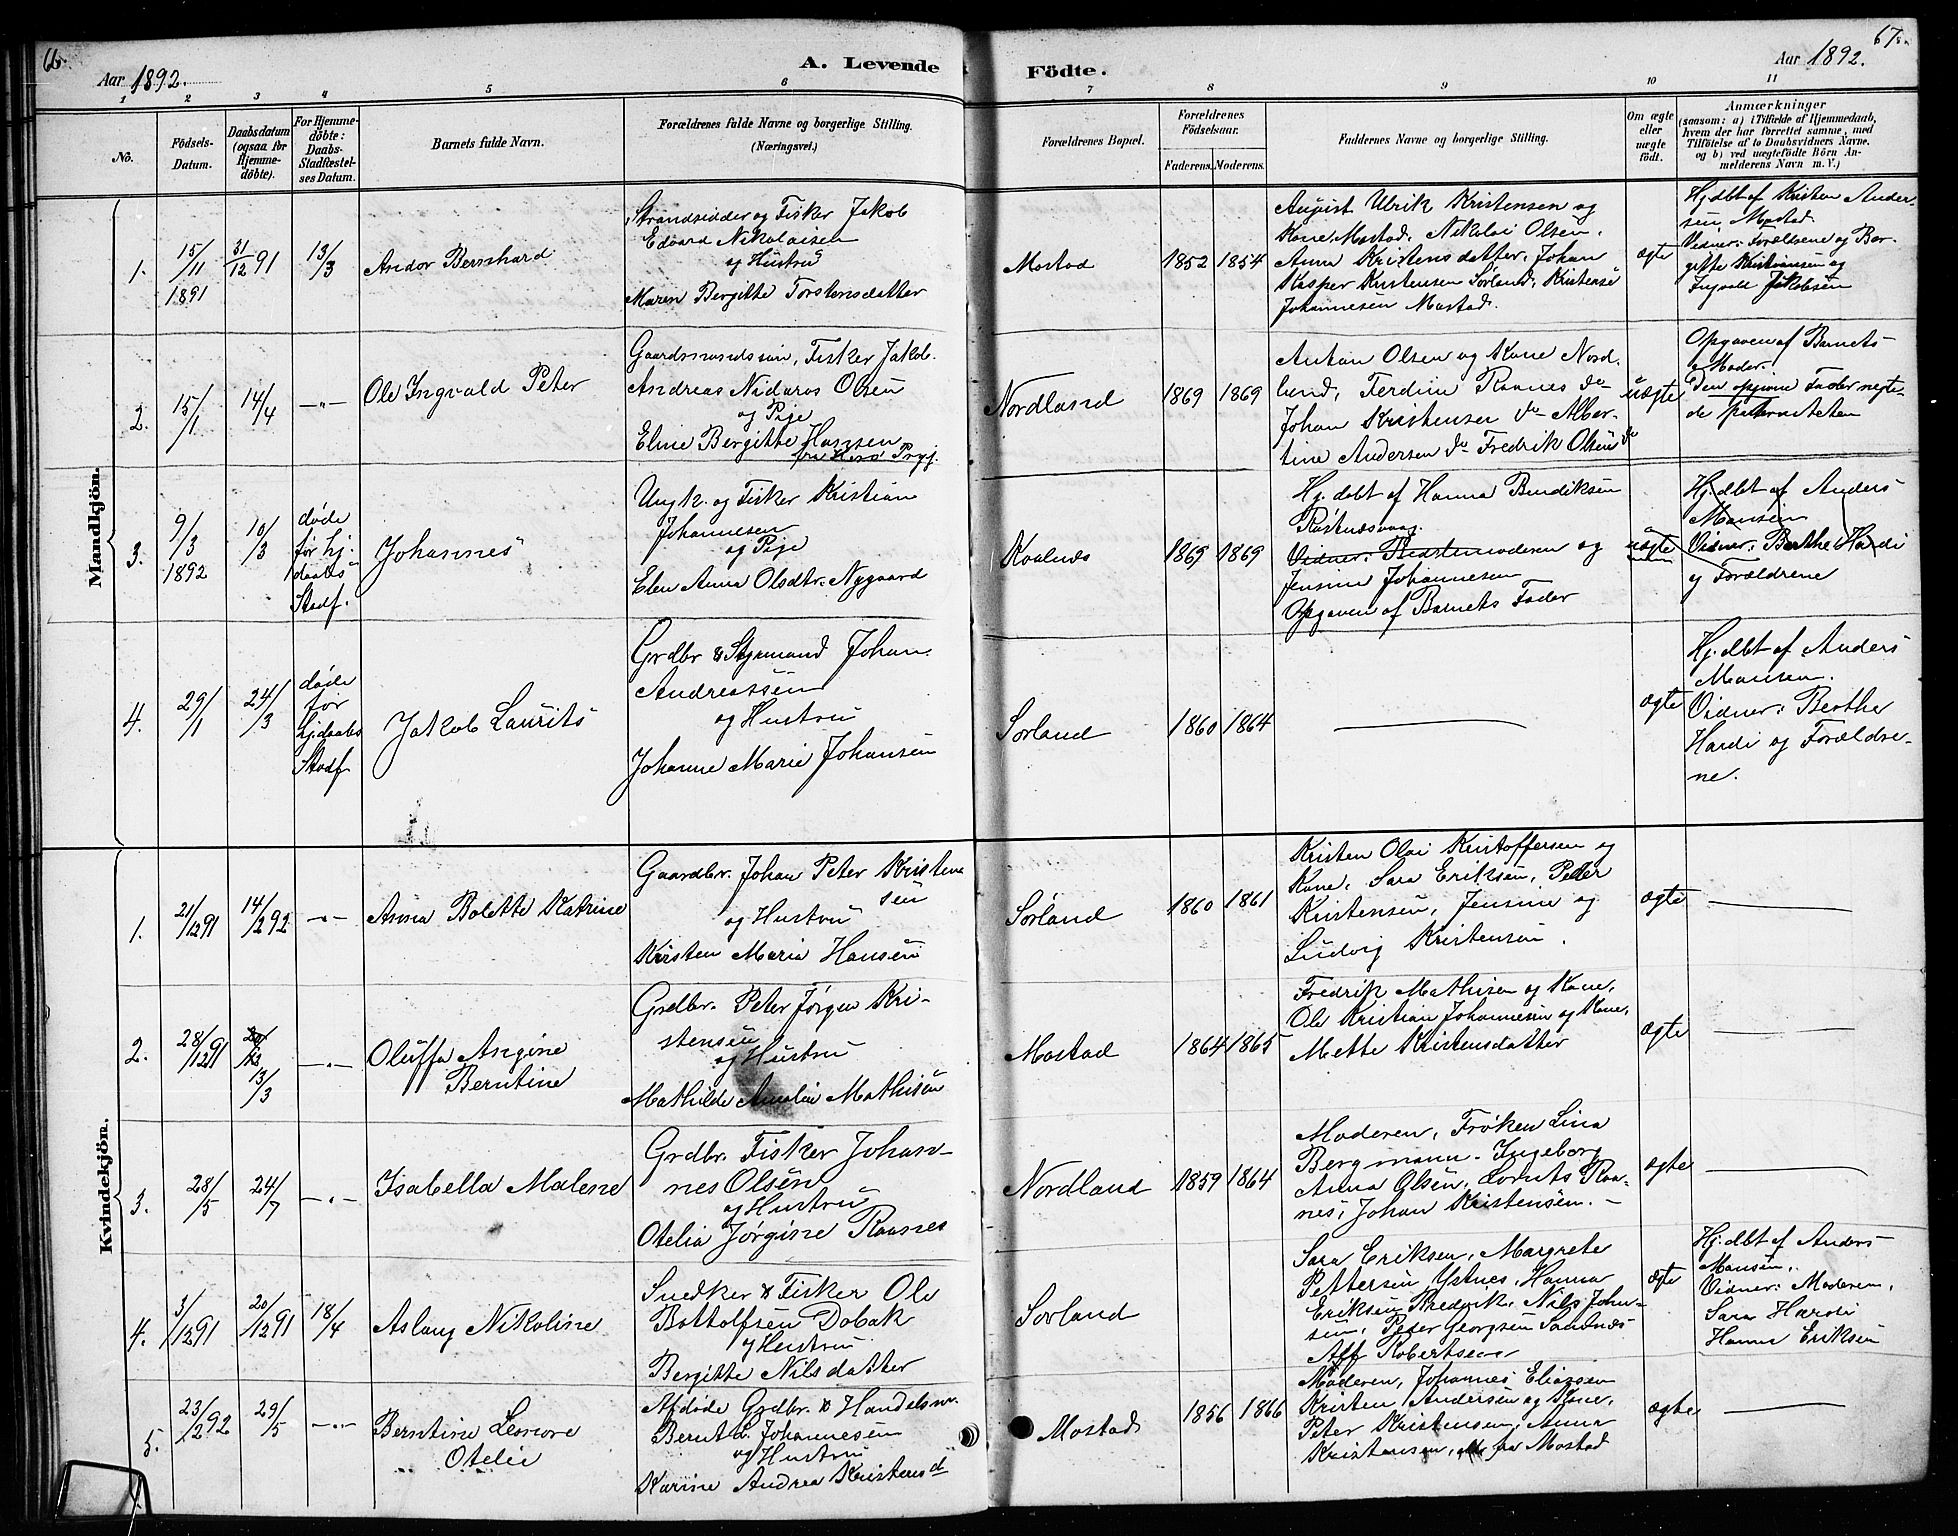 66.
Aar 1892.
A. Levende
Födte.
Aar 1892.
67.
1 2 3 4 5 6 7 8 9 10 11
No.
Födsels-Datum.
Daabsdatum (ogsaa for Hjemmedöbte).
For Hjemmedöbte: Daabs-Stadfæstelses Datum.
Barnets fulde Navn.
Forældrenes fulde Navne og borgerlige Stilling.
(Næringsvei.)
Forældrenes Bopæl.
Forældrenes Födselsaar.
Faderens. Moderens.
Faddernes Navne og borgerlige Stilling.
Om ægte eller uægte født.
Anmærkninger
(saasom: a) i Tilfælde af Hjemmedaab,
hvem der har forrettet samme, med
Tilföielse af to Daabsvidners Navne.
og b) ved uægtefödte Börn Anmelderens Navn m. V.)
Mandkjön.
1.
15/11 1891
31/12 91
13/3
Andor Bernhard
Strandsidder og Fisker Jakob
Edvard Nikolaisen
og Hustru
Maren Bergitte Torstensdatter
Mostad
1852 1854
August Ulrik Kristensen og
Kone, Mostad, Nikolai Olsen,
Anna Kristensdatter, Johan
Kasper Kristensen Sørland, Kristense
Johannesen Mostad.
ægte
Hj.dbt af Kristen Ander-
sen, Mostad.
Vidner: Forældrene og Ber-
gitte Kristiansen og
Ingvald Jakobsen
2.
15/1
14/4
—"—
Ole Ingvald Peter
Gaardmandssøn, Fisker Jakob
Andreas Nidaros Olsen
og Pige
Eline Bergitte Hansen
fra Herø Prgj.
Nordland
1869 1869
Anton Olsen og Kone Nord-
lund, Ferdin. Raanes do
Johan Kristensen do Alber-
tine Andersen do Fredrik Olsen do
uægte
Opgaven af Barnets
Moder.
Den opgivne Fader negte-
de paterniteten
3.
9/3 1892
10/3
døde
før hj.
daabs
Stadf.
Johannes
Ungk. og Fisker Kristian
Johannesen
og Pige
Elen Anna Olsdtr. Nygaard
Kvalnes
1869 1869
Hj. døbt af Hanna Bendiksen
Røstnesvaag.
Vidner: Barnemoderen og
Jensine Johannesen
Opgaven af Barnets Fader
uægte
Hj.dbt af Anders
Monsen
Vidner: Berthe Hardi
og Forældrene
4.
29/1
24/3
døde
før
hj.daabs
Stadf
Jakob Laurits
Grdbr & Styrmand Johan
Andreassen
og Hustru
Johanne Marie Johansen
Sørland
1860 1864
ægte
Hj.dbt af Anders
Monsen.
Vidner: Berthe
Hardi og Forældre-
ne.
Kvindekjön.
1.
21/12 91
14/2 92
—"—
Anna Bolette Katrine
Gaardbr. Johan Peter Kristen-
sen
og Hustru
Kirsten Maria Hansen
Sørland
1860 1861
Kristen Olai Kristoffersen og
Kone, Sara Eriksen, Peder
Kristensen, Jensine og
Ludvig Kristensen.
ægte
2.
28/12 91
13/3
—"—
Oluffa Angine
Berntine
Grdbr. Peter Jørgen Kri-
stensen
og Hustru
Mathilde Amalie Mathisen
Mostad
1864 1865
Fredrik Mathisen og Kone,
Ole Kristian Johannesen og Kone,
Mette Kristensdatter
ægte
3.
28/5
24/7
—"—
Isabella Malene
Grdbr. Fisker Johan-
nes Olsen
og Hustru
Otelia Jørgine Raanes
Nordland
1859 1864
Moderen, Frøken Lina
Bergmann, Ingeborg
Anna Olsen, Lornts Raa-
nes, Johan Kristensen.
ægte
4.
3/12 91
20/12 91
18/4
Aslaug Nikoline
Snedker & Fisker Ole
Bottolfsen Dobak
og Hustru
Bergitte Nilsdatter
Sørland
Sara Eriksen, Margrete
Pettersen Ystnes, Hanna
Eriksen, Nils John-
sen, Peder Georgsen Sandnes
Alf Robertsen
ægte
Hj.dbt af Anders
Monsen.
Vidner: Moderen,
Sara Hardi
Hanna Eriksen
5.
23/2 92
29/5
—"—
Berntine Leonore
Otelie
Afdøde Grdbr. & Handelsm.
Bernt L. Johannesen
og Hustru
Karine Andrea Kristensd
Mostad
1856 1866
Moderen, Johannes Eliassen
Kristen Andersen og Kone,
Peter Kristensen, Anna
Kristensen, alle fra Mostad
ægte